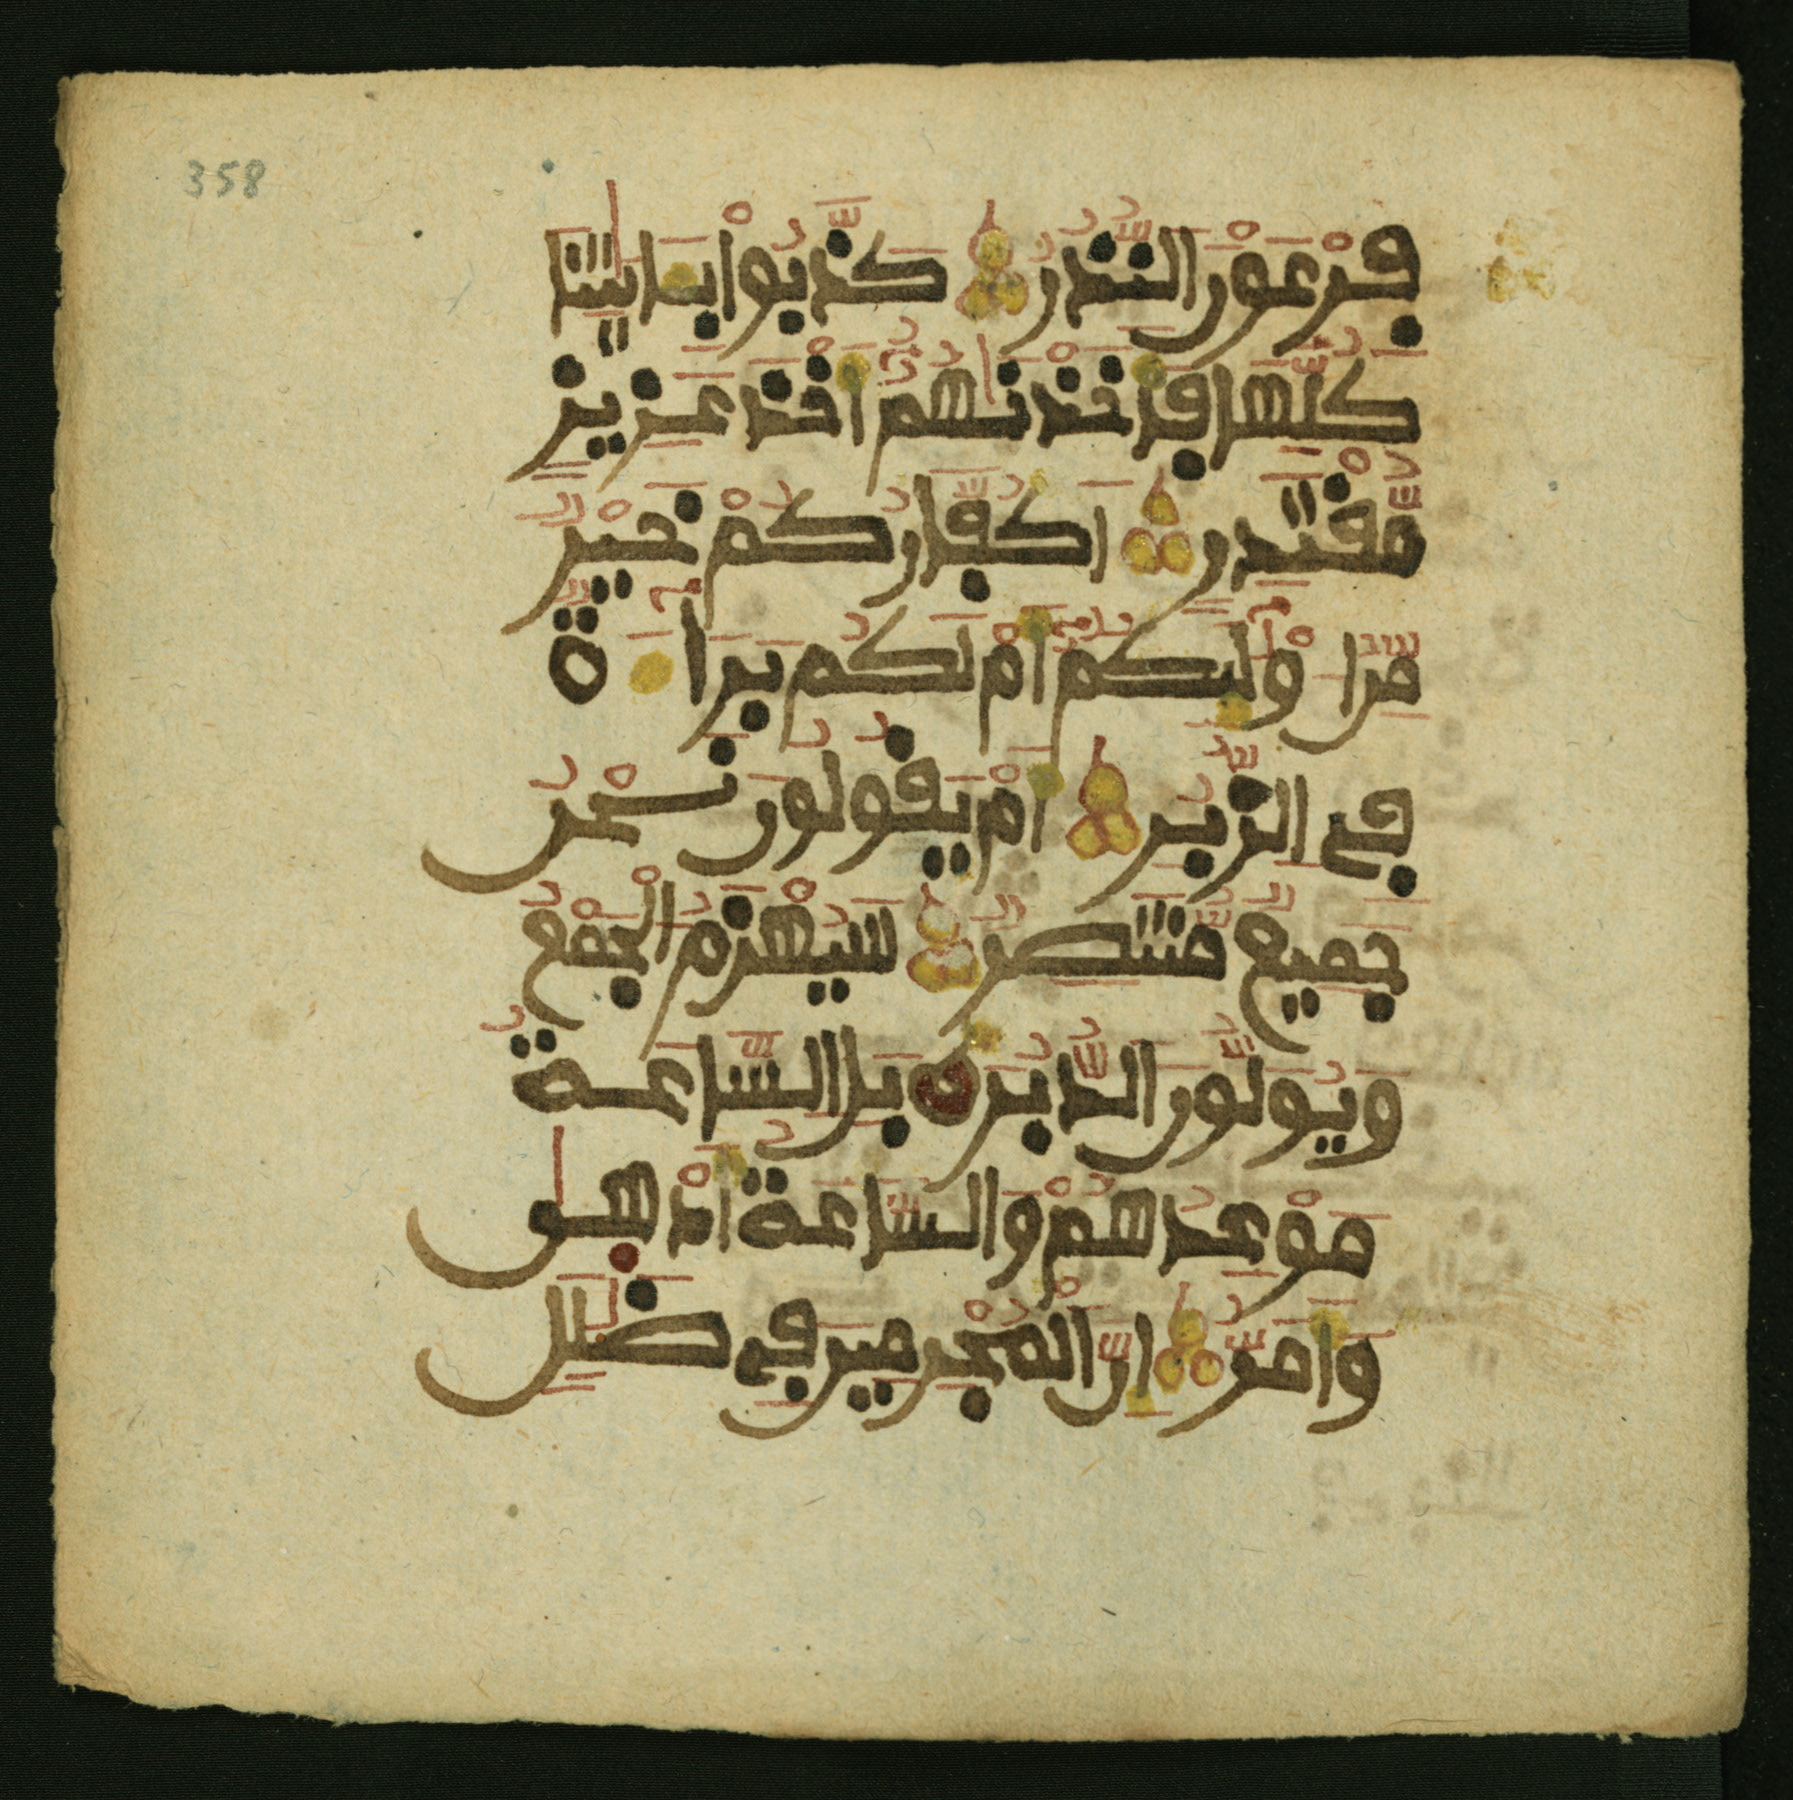 358
فِرْعَوْنَ ٱلنُّذُرُ كَذَّبُوا بِـَٔايَٰتِنَا
كُلِّهَا فَأَخَذْنَٰهُمُۥ أَخْذَ عَزِيزٖ
مُّقْتَدِرٍ أَكُفَّارُكُمْ خَيْرٞ
مِّنُ ا۟وْلَٰٓئِكُمُۥٓ أَمْ لَكُم بَرَآءَةٞ
فِے ٱلزُّبُرِ أَمْ يَقُولُونَ نَحْنُ
جَمِيعٞ مُّنتَصِرٞ سَيُهْزَمُ ٱلْجَمْعُ
وَيُوَلُّونَ ٱلدُّبُرَ بَلِ ٱلسَّاعَةُ
مَوْعِدُهُمْ وَٱلسَّاعَةُ أَدْهَىٰ
وَأَمَرُّ إِنَّ ٱلْمُجْرِمِينَ فِے ضَلَٰلٖ